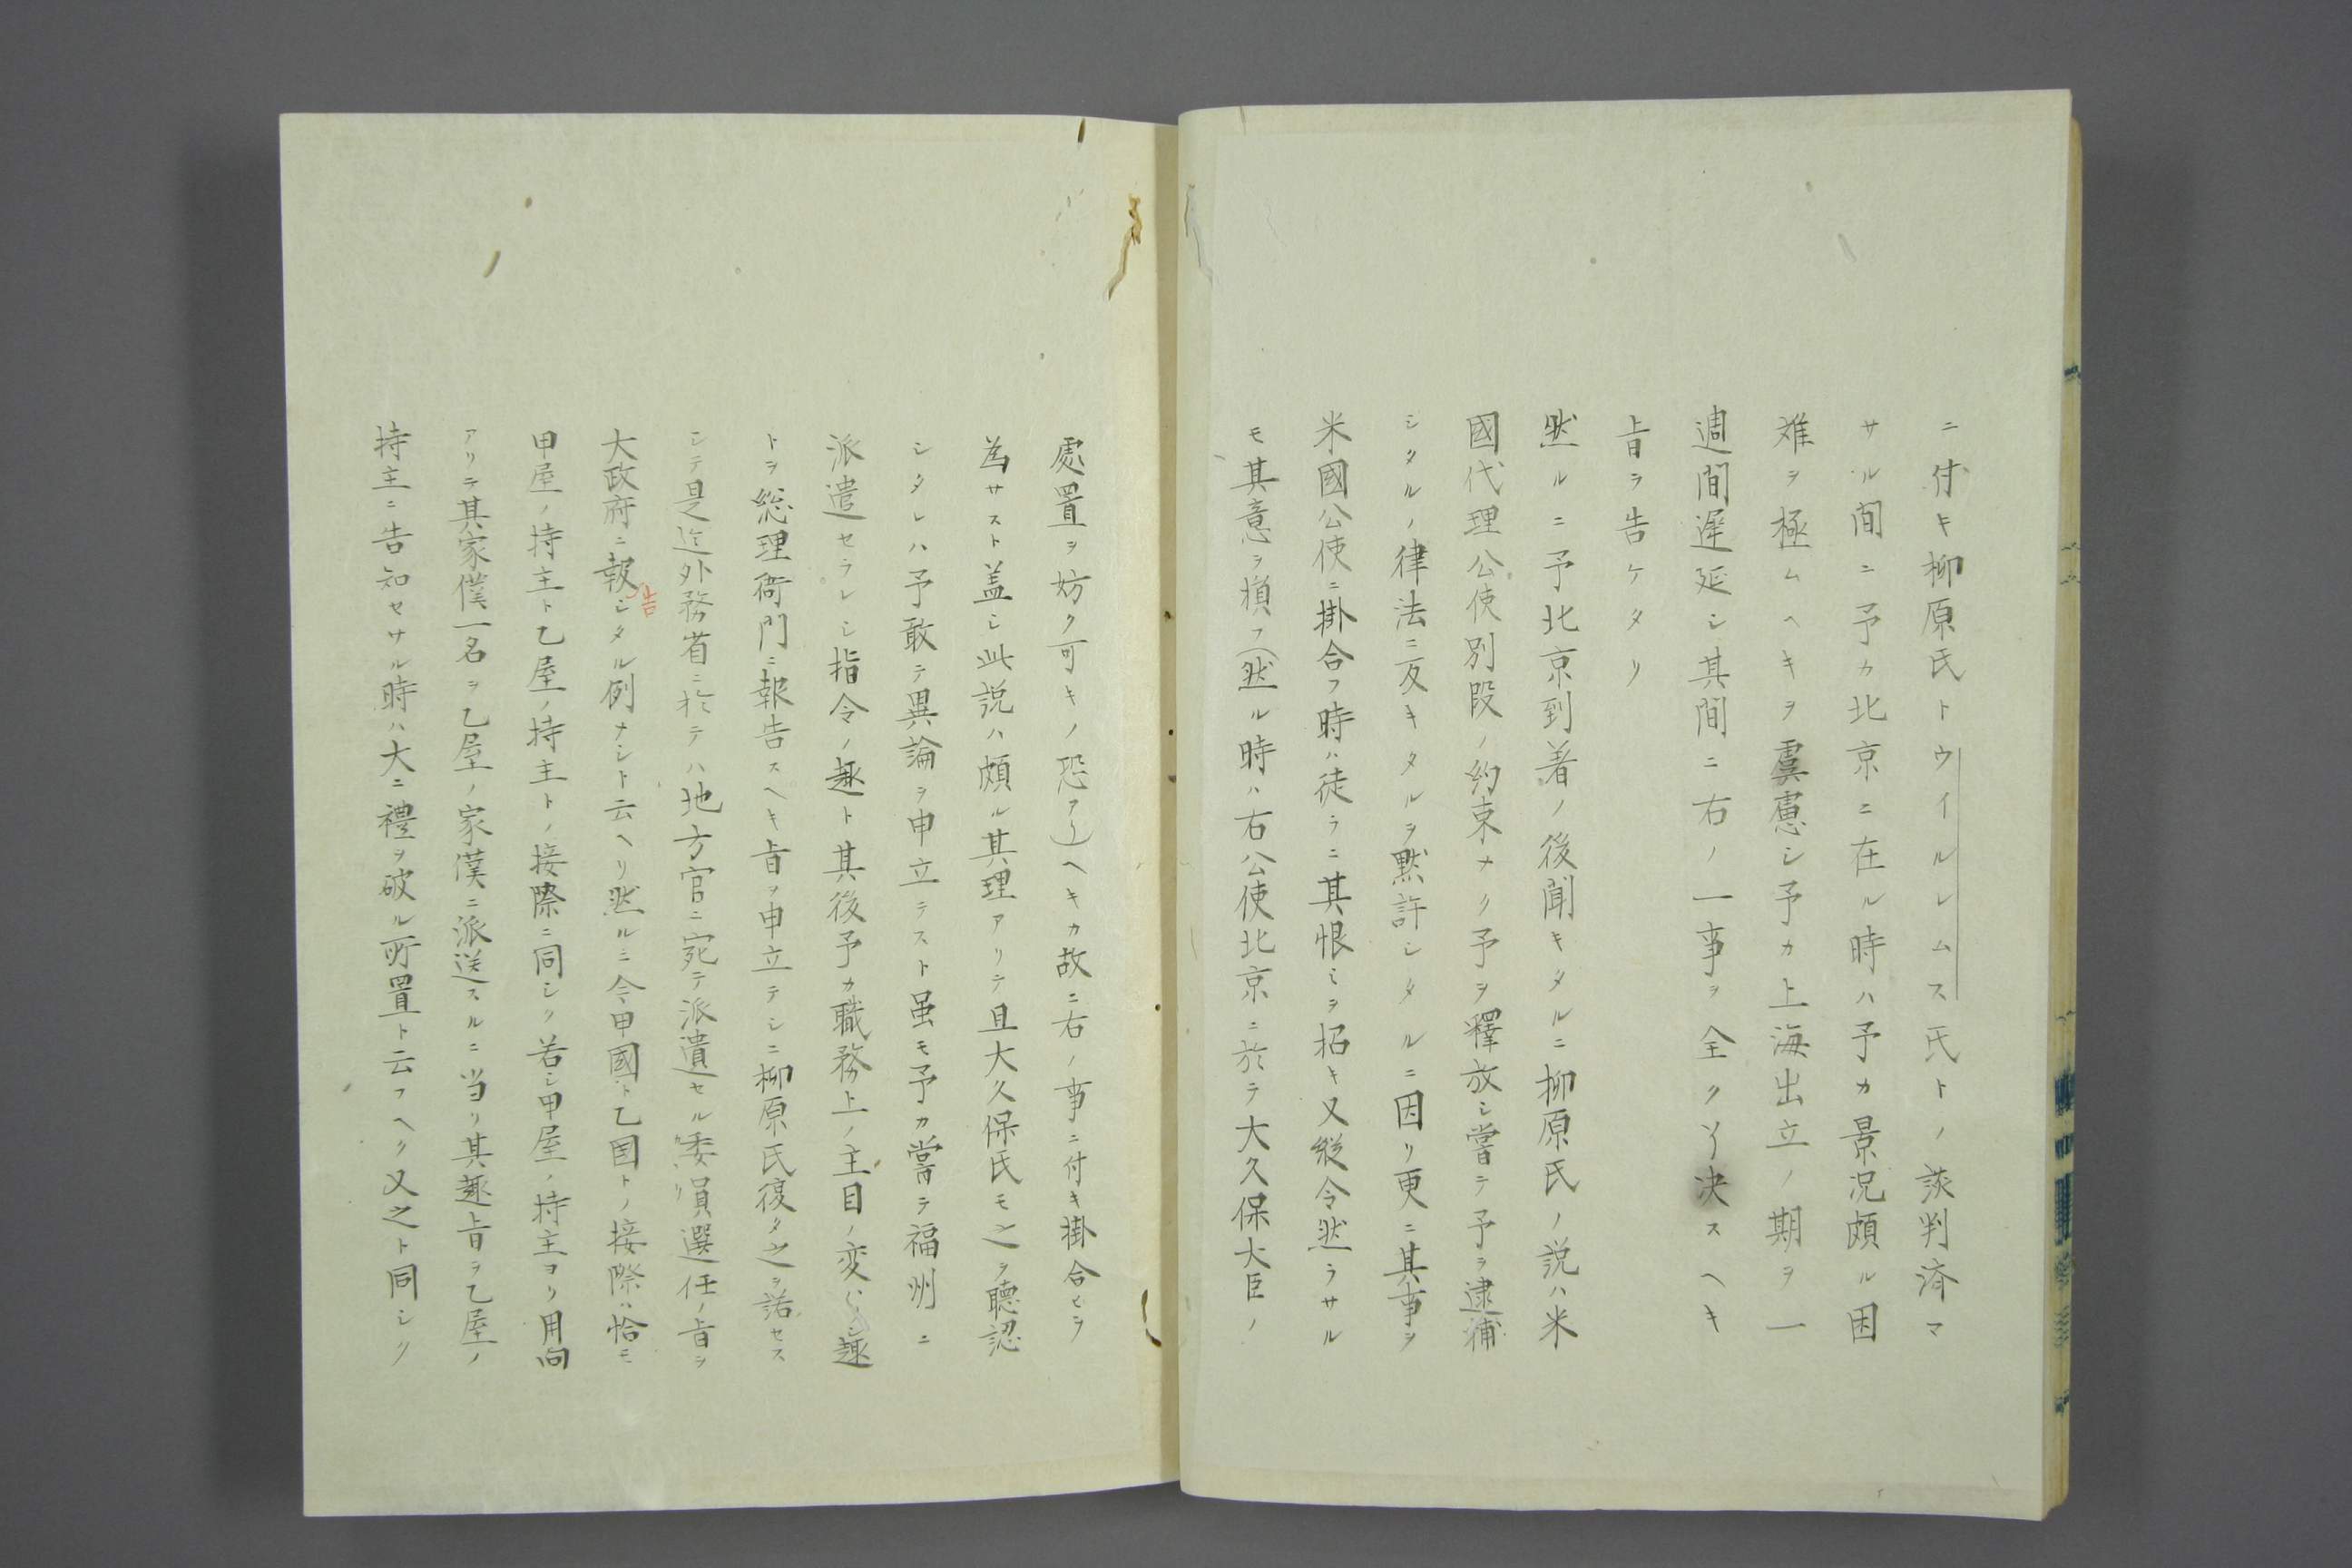 ニ付キ柳原氏トウイルレムス氏トノ談判済マ
サル間ニ予カ北京ニ在ル時ハ予カ景况頗ル困
难ヲ極ムヘキヲ虞慮シ予カ上海出立ノ期ヲ一
週間遅延シ其間ニ右ノ一事ヲ全ク決スヘキ
旨ヲ告ケタリ
然ルニ予北京到着ノ後聞キタルニ柳原氏ノ説ハ米
國代理公使別段ノ約束ナク予ヲ釋放シ嘗テ予ヲ逮捕
シタルノ律法ニ反キタルヲ黙許シタルニ因リ更ニ其事ヲ
米國公使ニ掛合フ時ハ徒ラニ其恨ミヲ招キ又縦令然ラサル
モ其意ヲ損フ(然ル時ハ右公使北京ニ於テ大久保大臣ノ
處置ヲ妨ク可キノ恐アリ)ヘキカ故ニ右ノ事ニ付キ掛合ヒヲ
為サスト盖シ此説ハ頗ル其理アリテ且大久保氏モ之ヲ聴認
シタレハ予敢テ異論ヲ申立ラスト虽モ予カ嘗テ福州ニ
派遣セラレシ指令ノ趣ト其後予カ職務上ノ主目ノ変シ趣
トヲ総理衙門ニ報告スヘキ旨ヲ申立テシニ柳原氏復タ之ヲ諾セス
シテ是迄外務省ニ於テハ地方官ニ宛テ派遣セル委員選任ノ旨ヲ
大政府ニ報告シタル例ナシト云ヘリ然ルニ今甲國ト乙国トノ接際ハ恰モ
甲屋ノ持主ト乙屋ノ持主トノ接際ニ同シク若シ甲屋ノ持主ヨリ用向
アリテ其家僕一名ヲ乙屋ノ家僕ニ派送スルニ当リ其趣旨ヲ乙屋ノ
持主ニ告知セサル時ハ大ニ禮ヲ破ル所置ト云フヘク又之ト同シク